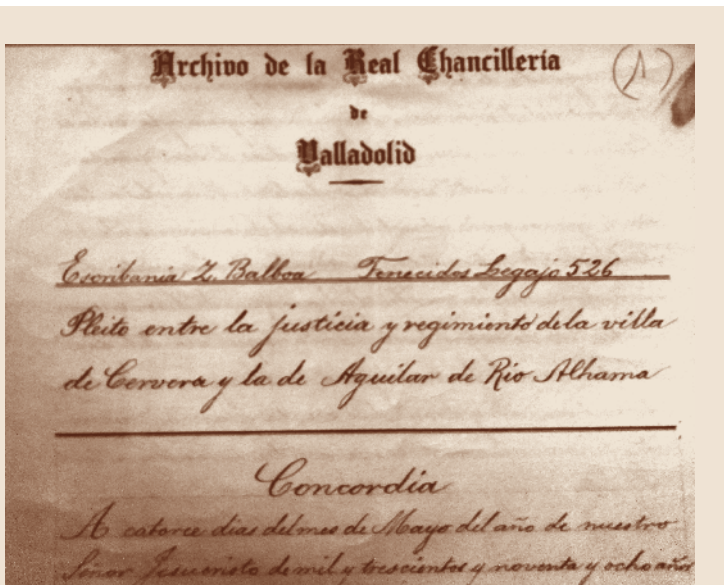 Archivo de la Real Chancillería
de
Valladolid
Escribania Z. Balboa Fenecidos Legajo 526
Pleito entre la justicia y regimiento de la villa
de Cervera y la de Aguilar de Rio Alhama
Concordia
A catorce dias del mes de Mayo del año de nuestro
Señor Jesucristo de mil y trescientos y noventa y ocho años